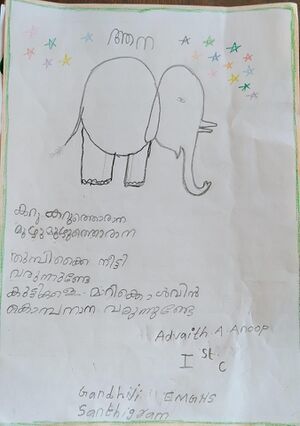 ആന
കറു കറുത്തൊരാന
മുഴുമുഴുത്തൊരാന
തുമ്പിക്കൈ നീട്ടി
വരുന്നുണ്ടേ
മറിക്കൊൾവിൻ
കൊമ്പനാന വരുന്നുണ്ടേ
Advaith. A. Anoop
I st C
Gandhiji EMGHS
Santhigram